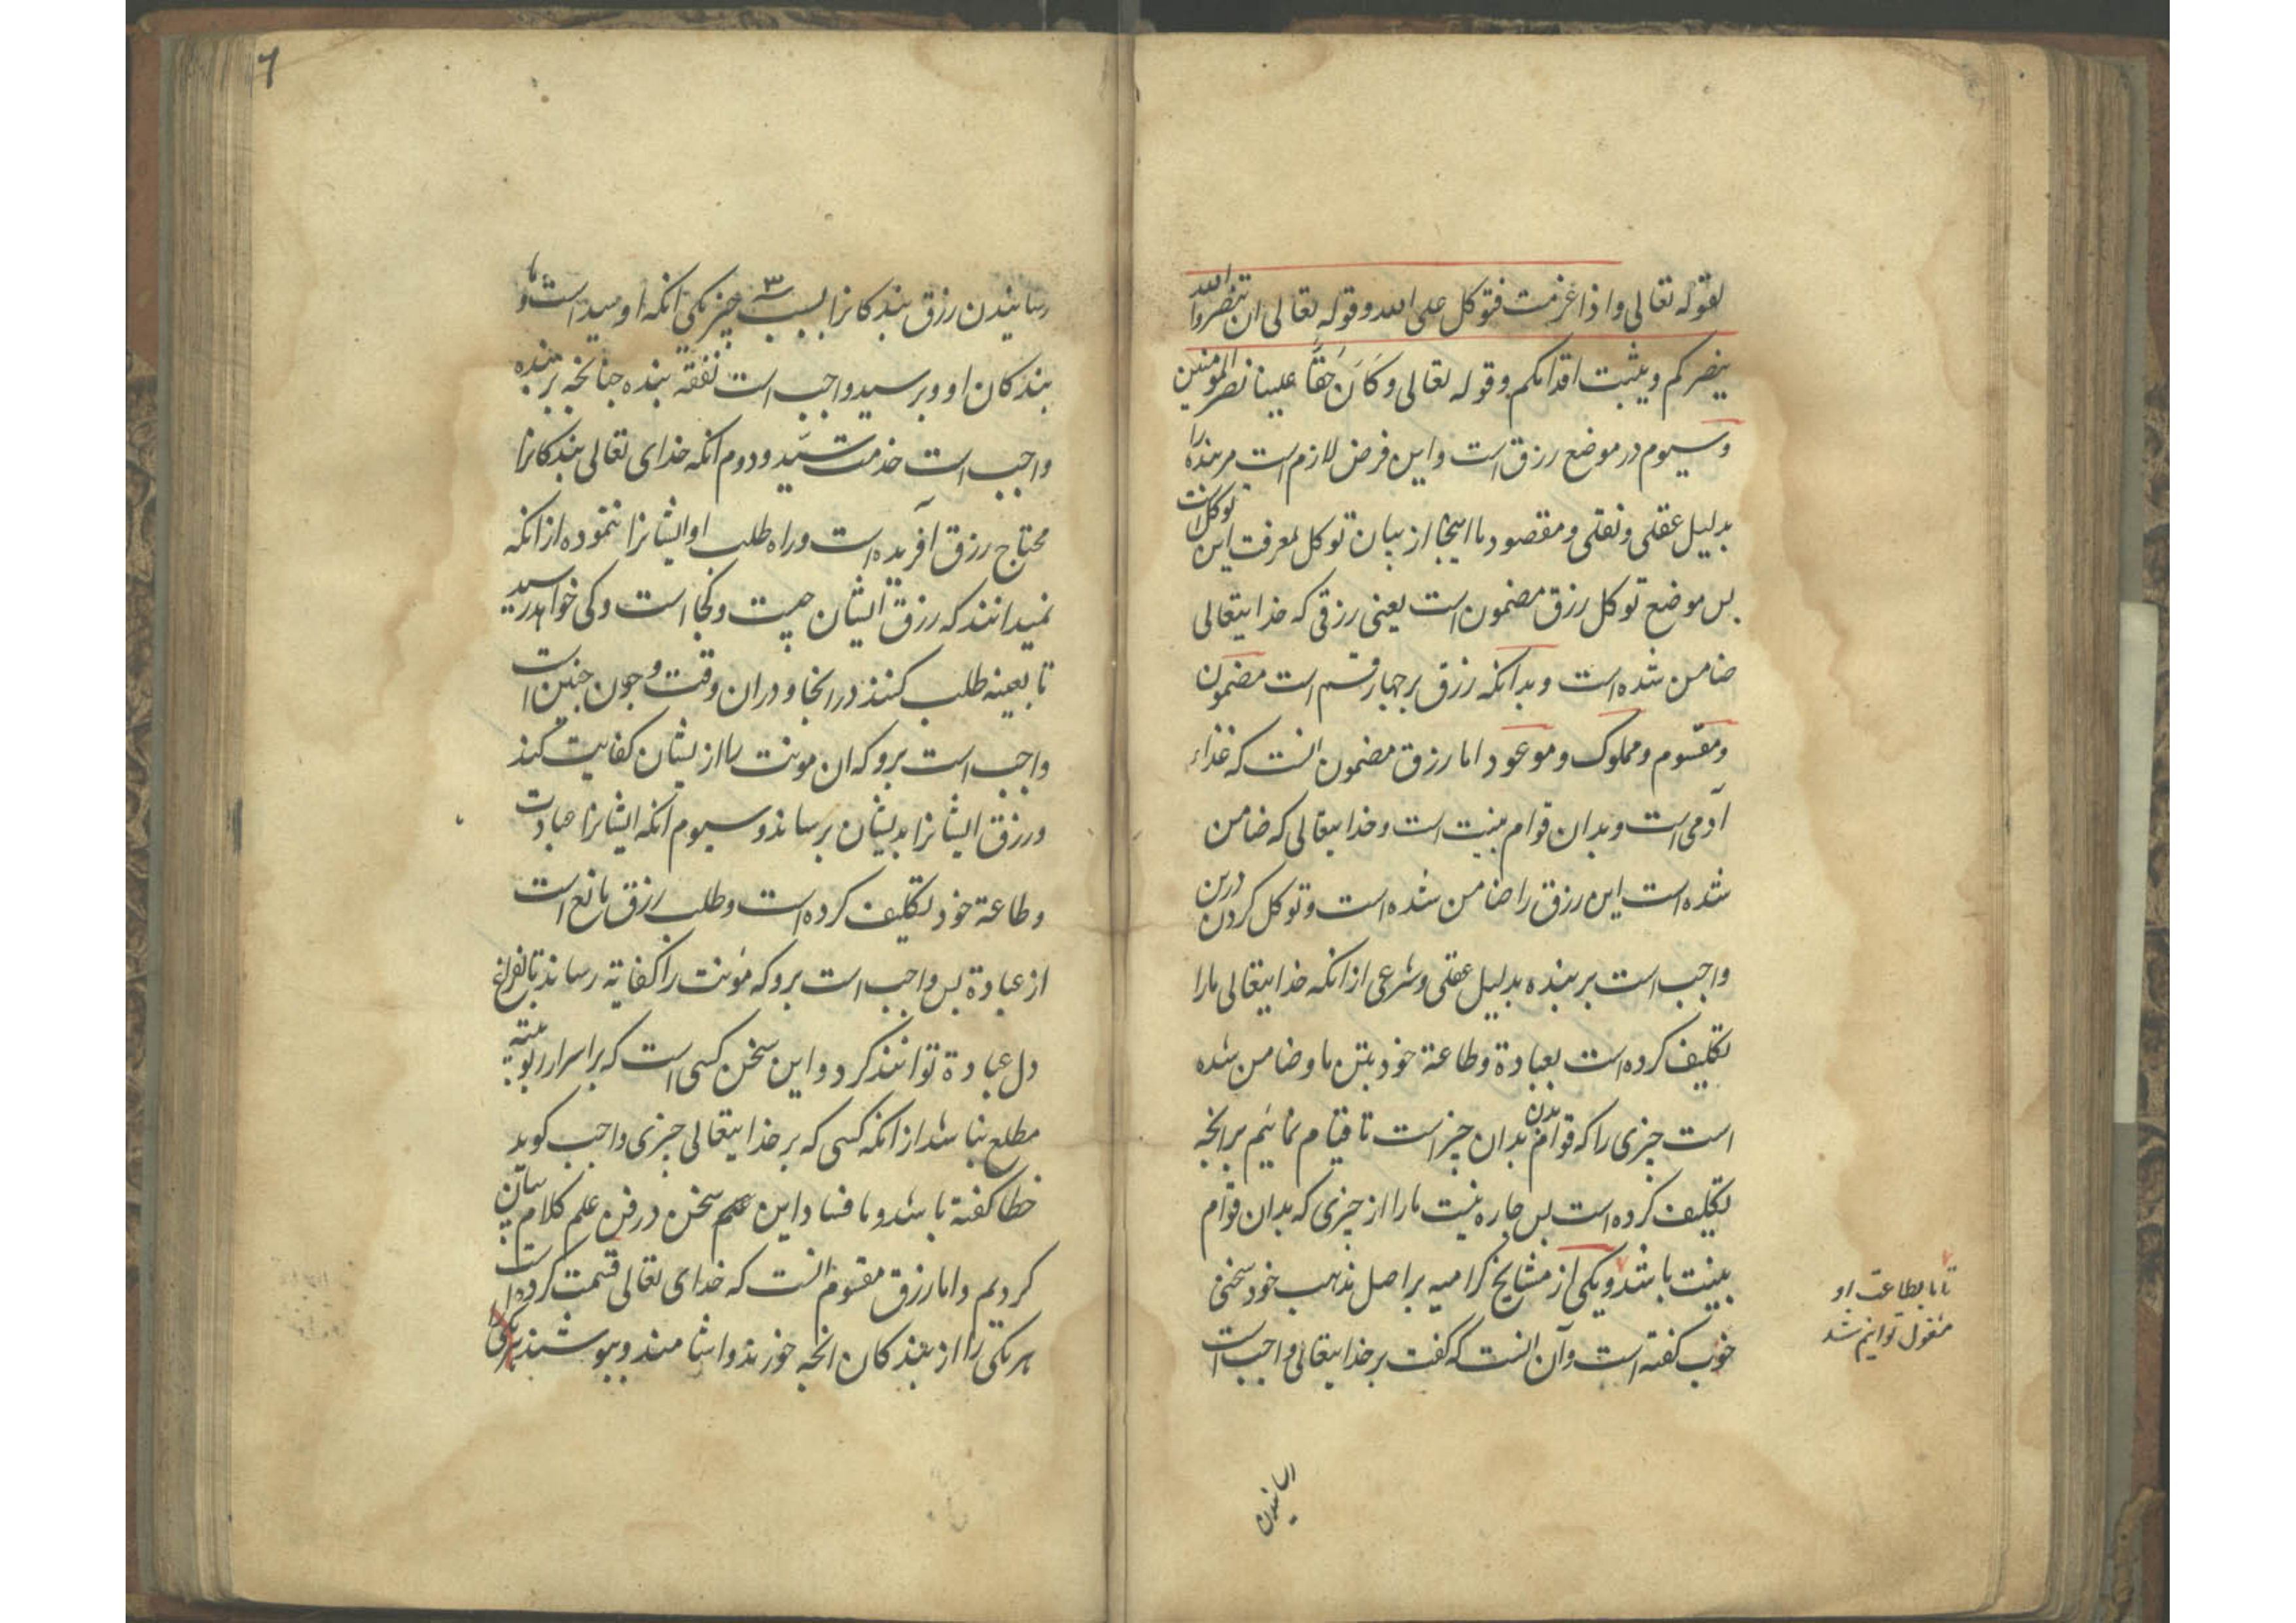 لقوله تعالی واذا عزمت فتوکل علی الله وقوله تعالی ان تنصروا الله
ینصرکم ویثبت اقدامکم وقوله تعالی وَکَانَ حَقًّا علینا نصر المومنین
وسیوم در موضع رزق است واین فرض لازم است مر بنده را
بدلیل عقلی ونقلی ومقصود ما اینجا از بیان توکل معرفت این توکل است
بس موضع توکل رزق مضمون است یعنی رزقی که خدایتعالی
ضامن شده است وبدانکه رزق بر جهار قسم است مضمون
ومقسوم ومملوک وموعود اما رزق مضمون انست که غذاء
آدمی است وبدان قوام بنیت است وخدایتعالی که ضامن
شده است این رزق را ضامن شده است وتوکل کردن درین
واجب است بر بنده بدلیل عقلی وشرعی از انکه خدایتعالی مارا
تکلیف کرده است بعبادة وطاعة خود بتن ما وضامن شده
است جیزی را که قوام بدن بدان جیز است تا قیام نمائیم برانجه
تکلیف کرده است بس جاره نیست مارا از جیزی که بدان قوام
بنیت باشد ویکی از مشایخ کرامیه بر اصل مذهب خود سخنی
خوب کفته است وآن انست که کفت بر خدایتعالی واجب است
تا ما بطاعت او
مشغول توانیم شد
رسانیدن
٦
رسانیدن رزق بندکانرا بسبب ٣ جیز یکی انکه او سید است وما
بندکان او وبر سید واجب است نفقه بنده جنانجه بر بنده
واجب است خدمت سَیّد ودوم انکه خدای تعالی بندکانرا
محتاج رزق آفریده است وراه طلب او ایشانرا ننموده از انکه
نمیدانند که رزق ایشان جیست وکجا است وکی خواهد رسید
تا بعینه طلب کنند در انجا ودران وقت وجون جنین است
واجب است برو که ان مونت را از یشان کفایت کند
ورزق ایشانرا بدیشان برساند وسیوم انکه ایشانرا عبادت
وطاعة خود تکلیف کرده است وطلب رزق مانع است
از عبادة بس واجب است برو که مؤنت را کفایة رساند تا بفراغ
دل عبادة توانند کرد واین سخن کسی است که بر اسرار ربوبیته
مطلع نباشد از انکه کسی که بر خدایتعالی جیزی واجب کوید
خطا کفته باشد وما فساد این سخن در فن علم کلام بیان
کردیم واما رزق مقسوم انست که خدای تعالی قسمت کرده است
هر یکی را از بندکان انجه خورند واشامند وبپوشند